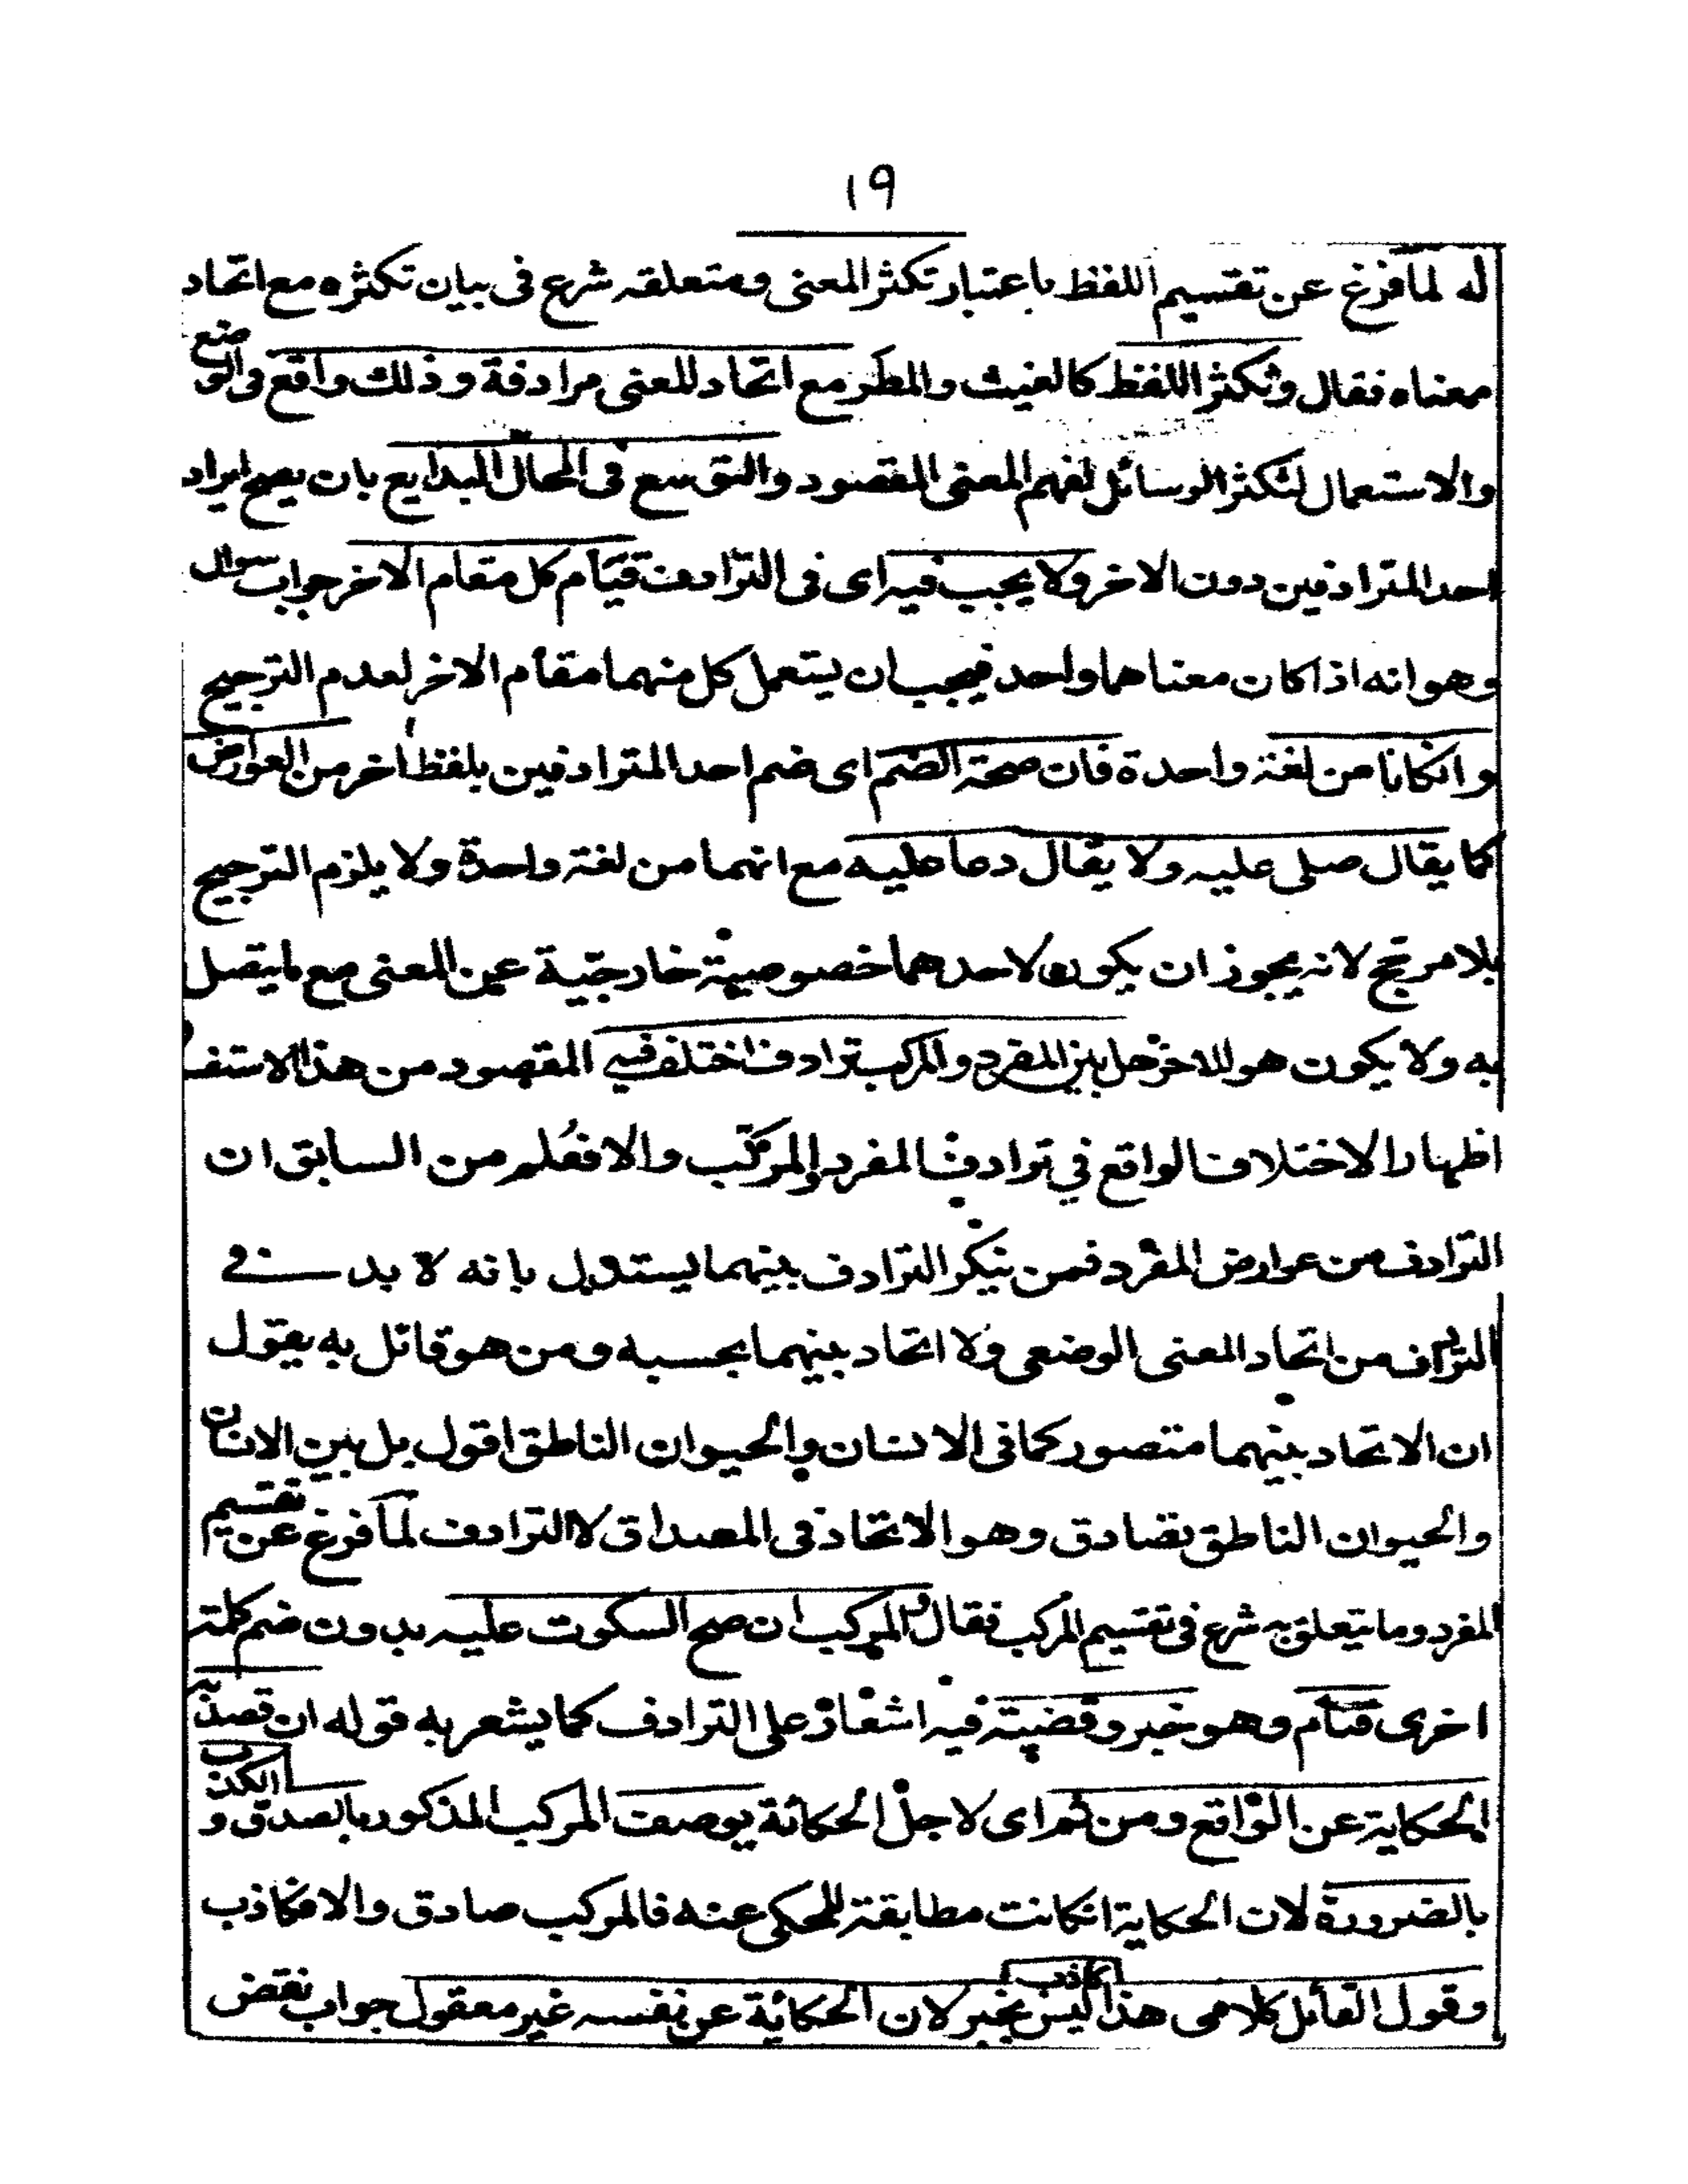 ١٩
له لما فرغ عن تقسيم اللفظ باعتبار تكثر المعنى ومتعلقه شرع فى بيان تكثره مع اتحاد
معناه فقال وتكثر اللفظ كالغيث والمطر مع اتحاد المعنى مرادفة وذلك واقع فى الوضع
والاستعمال لتكثر الوسائل لفهم المعنى المقصود والتوسع فى المحال البدايع بان يصح ايراد
احد المترادفين دون الاخر ولا يجب فيه اى فى الترادف قيام كل مقام الاخر جواب سوال
وهو انه اذا كان معناهما واحد فيجب ان يستعمل كل منهما مقام الاخر لعدم الترجيح
وانكانا من لغة واحدة فان صحة الضم اى ضم احد المترادفين بلفظ اخر من العوارض
كما يقال صلى عليه ولا يقال دعا عليه مع انهما من لغة واحدة ولا يلزم الترجيح
بلا مرجح لانه يجوز ان يكون لاحدهما خصوصية خارجية عن المعنى مع ما يتصل
به ولا يكون هو للاخر هل بين المفرد والمركب ترادف اختلف فيه المقصود من هذا الاستف
اظهار الاختلاف الواقع في ترادف المفرد والمركب والا فعلم من السابق ان
الترادف من عوارض المفرد فمن ينكر الترادف بينهما يستدل بانه لا بد فے
الترادف من اتحاد المعنى الوضعى ولا اتحاد بينهما بحسبه ومن هو قائل به يقول
ان الاتحاد بينهما متصور كما فى الانسان والحيوان الناطق اقول بل بين الانسان
والحيوان الناطق تصادق وهو الاتحاد فى المصداق لا الترادف لما فرغ عن تقسيم
المفرد وما يتعلق به شرع فى تقسيم المركب فقال والمركب ان صح السكوت عليه بدون ضم كلمة
اخرى فتام وهو خبر وقضية فيه اشعار على الترادف كما يشعر به قوله ان قصد به
الحكاية عن الواقع ومن ثم اى لاجل الحكائة يوصف المركب المذكور بالصدق و الكذب
بالضرورة لان الحكاية انكانت مطابقة للمحكى عنه فالمركب صادق والا فكاذب
وقول القائل كلامى هذا كاذب ليس بخبر لان الحكائية عن نفسه غير معقول جواب نقض